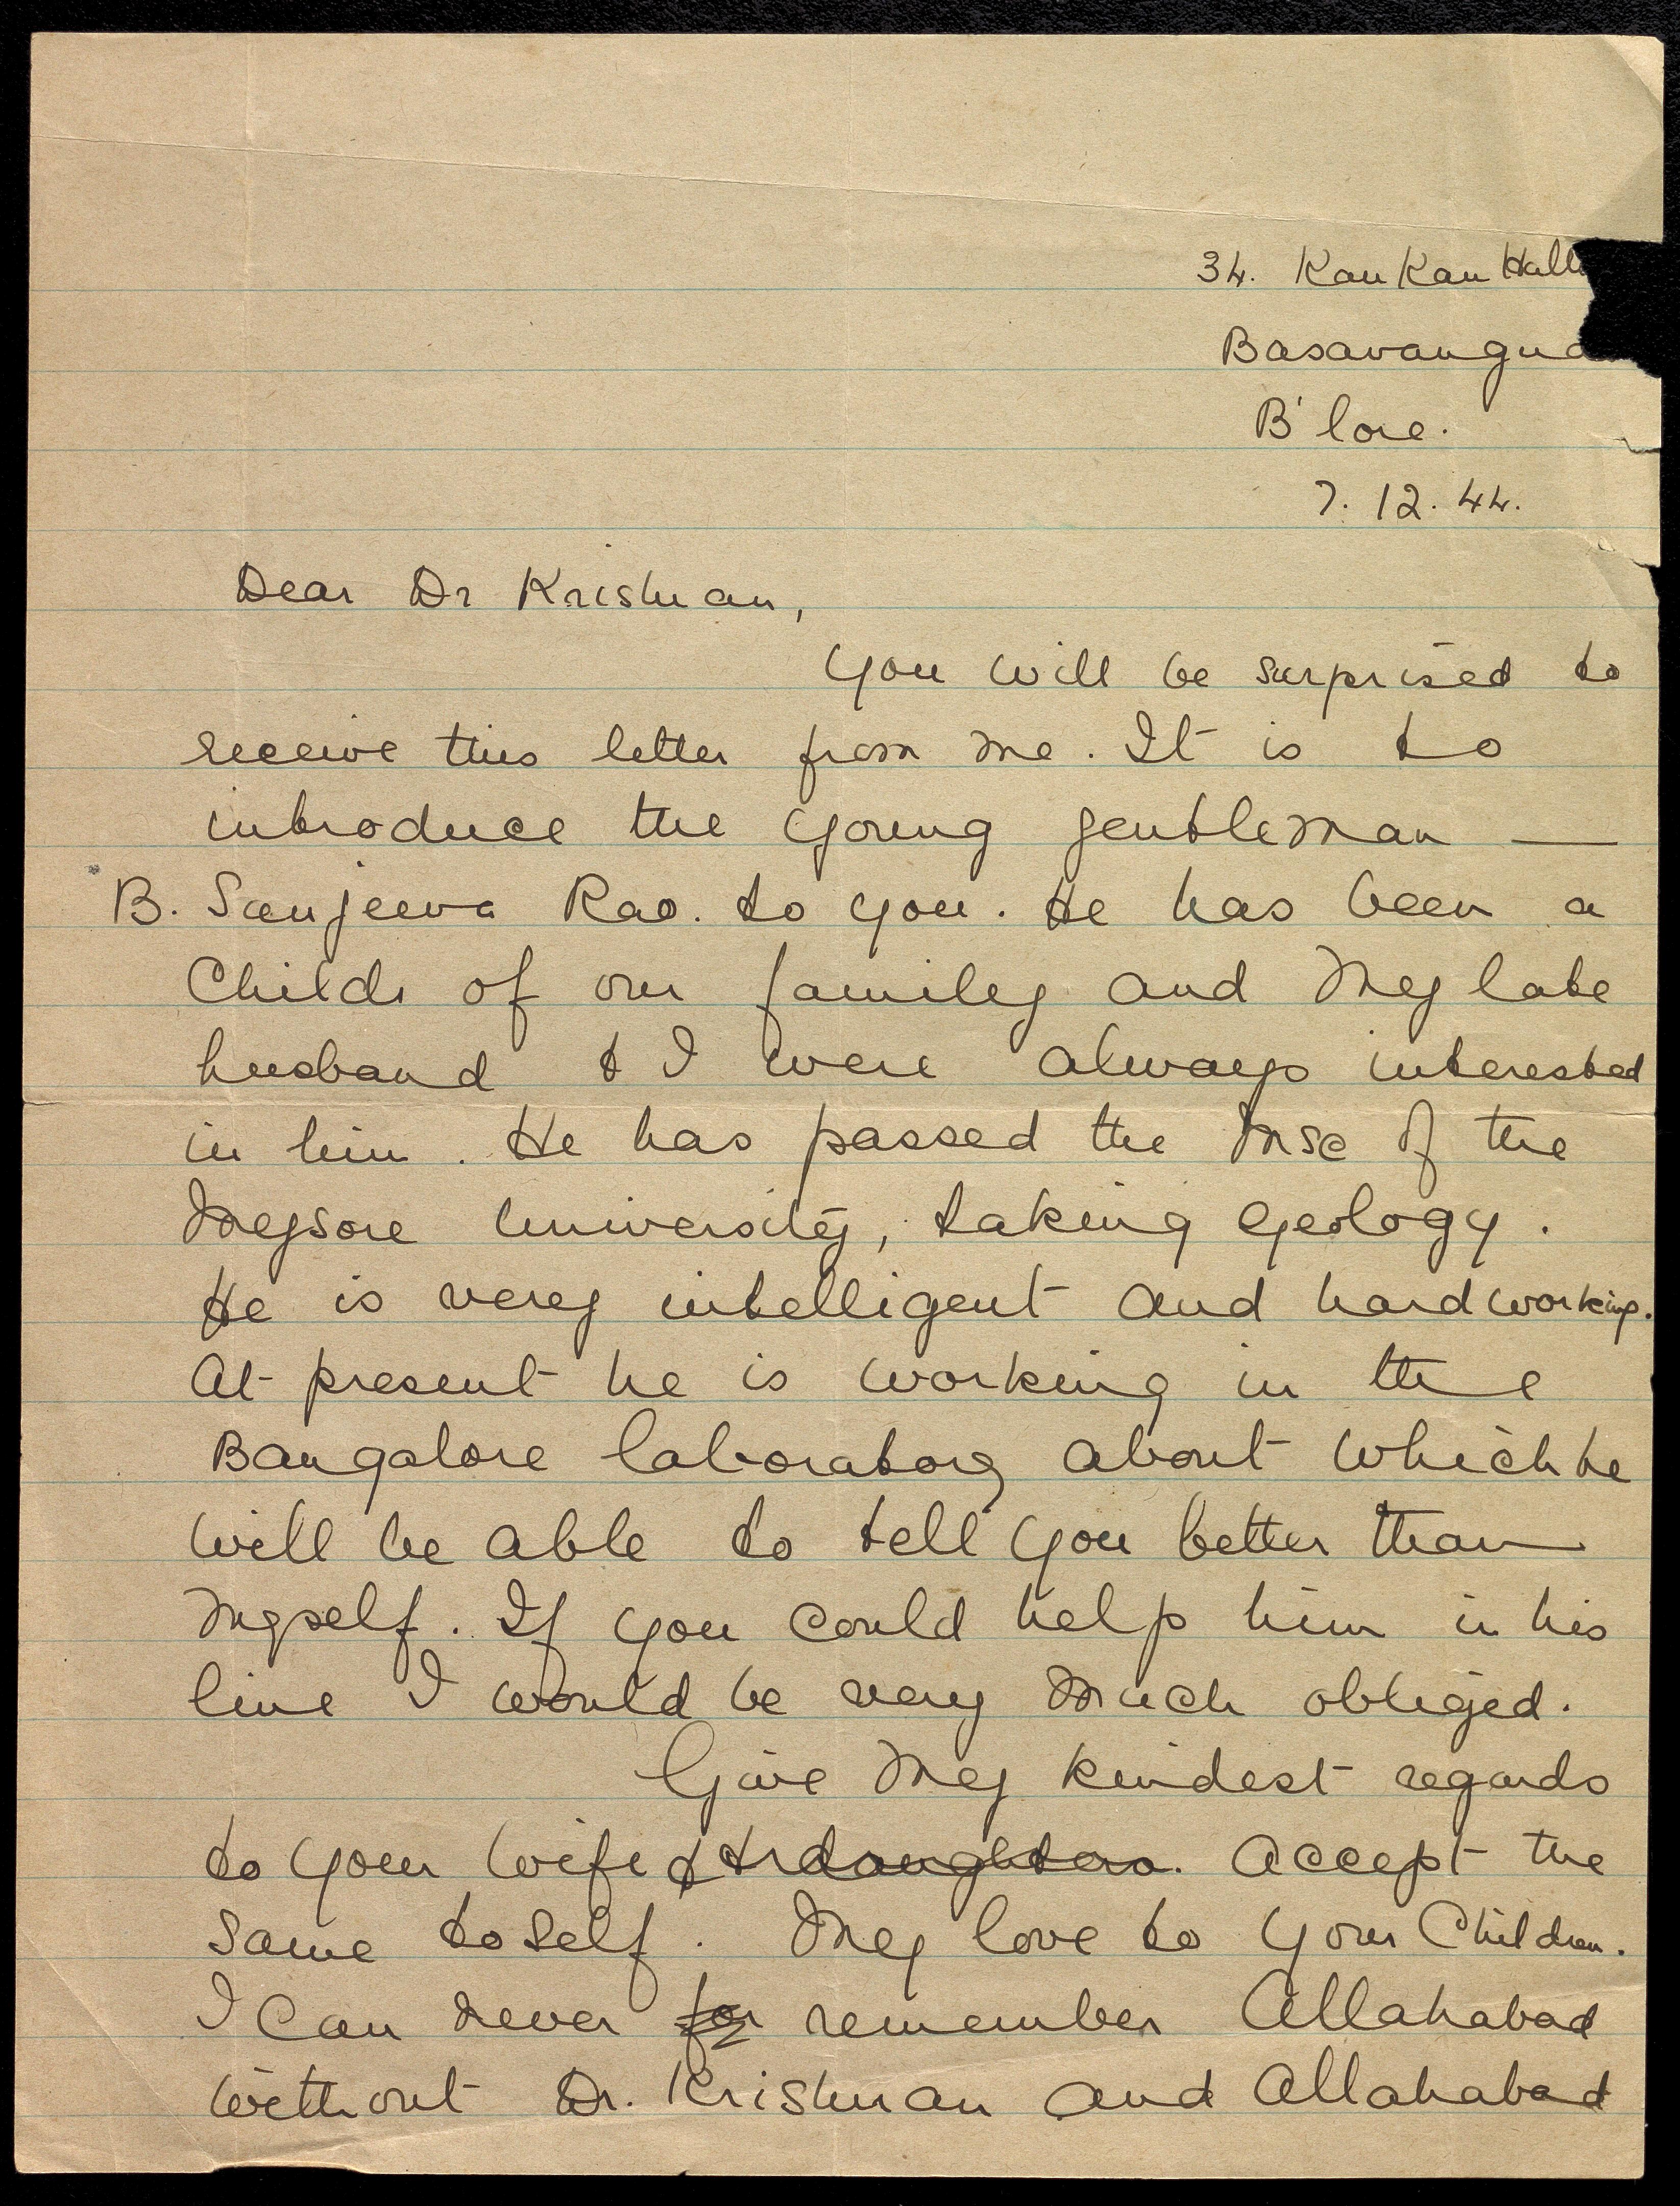 34. Kan Kan Halli
Basavangud
B'lore.
7. 12. 44.
Dear Dr Krishnan,
You will be surprised to
receive this letter from me. It is to
introduce the young gentleman —
B. Sanjeeva Rao. to you. He has been a
Child of our family and my late
husband & I were always interested
in him. He has passed the MSc of the
Mysore University, taking Geology.
He is very intelligent and hardworking.
At present he is working in the
Bangalore laboratory about which he
will be able to tell you better than
myself. If you could help him in his
line I would be very much obliged.
Give my kindest regards
to your wife & daughters. Accept the
same to self. My love to your Children.
I can never for remember Allahabad
without Dr. Krishnan and Allahabad